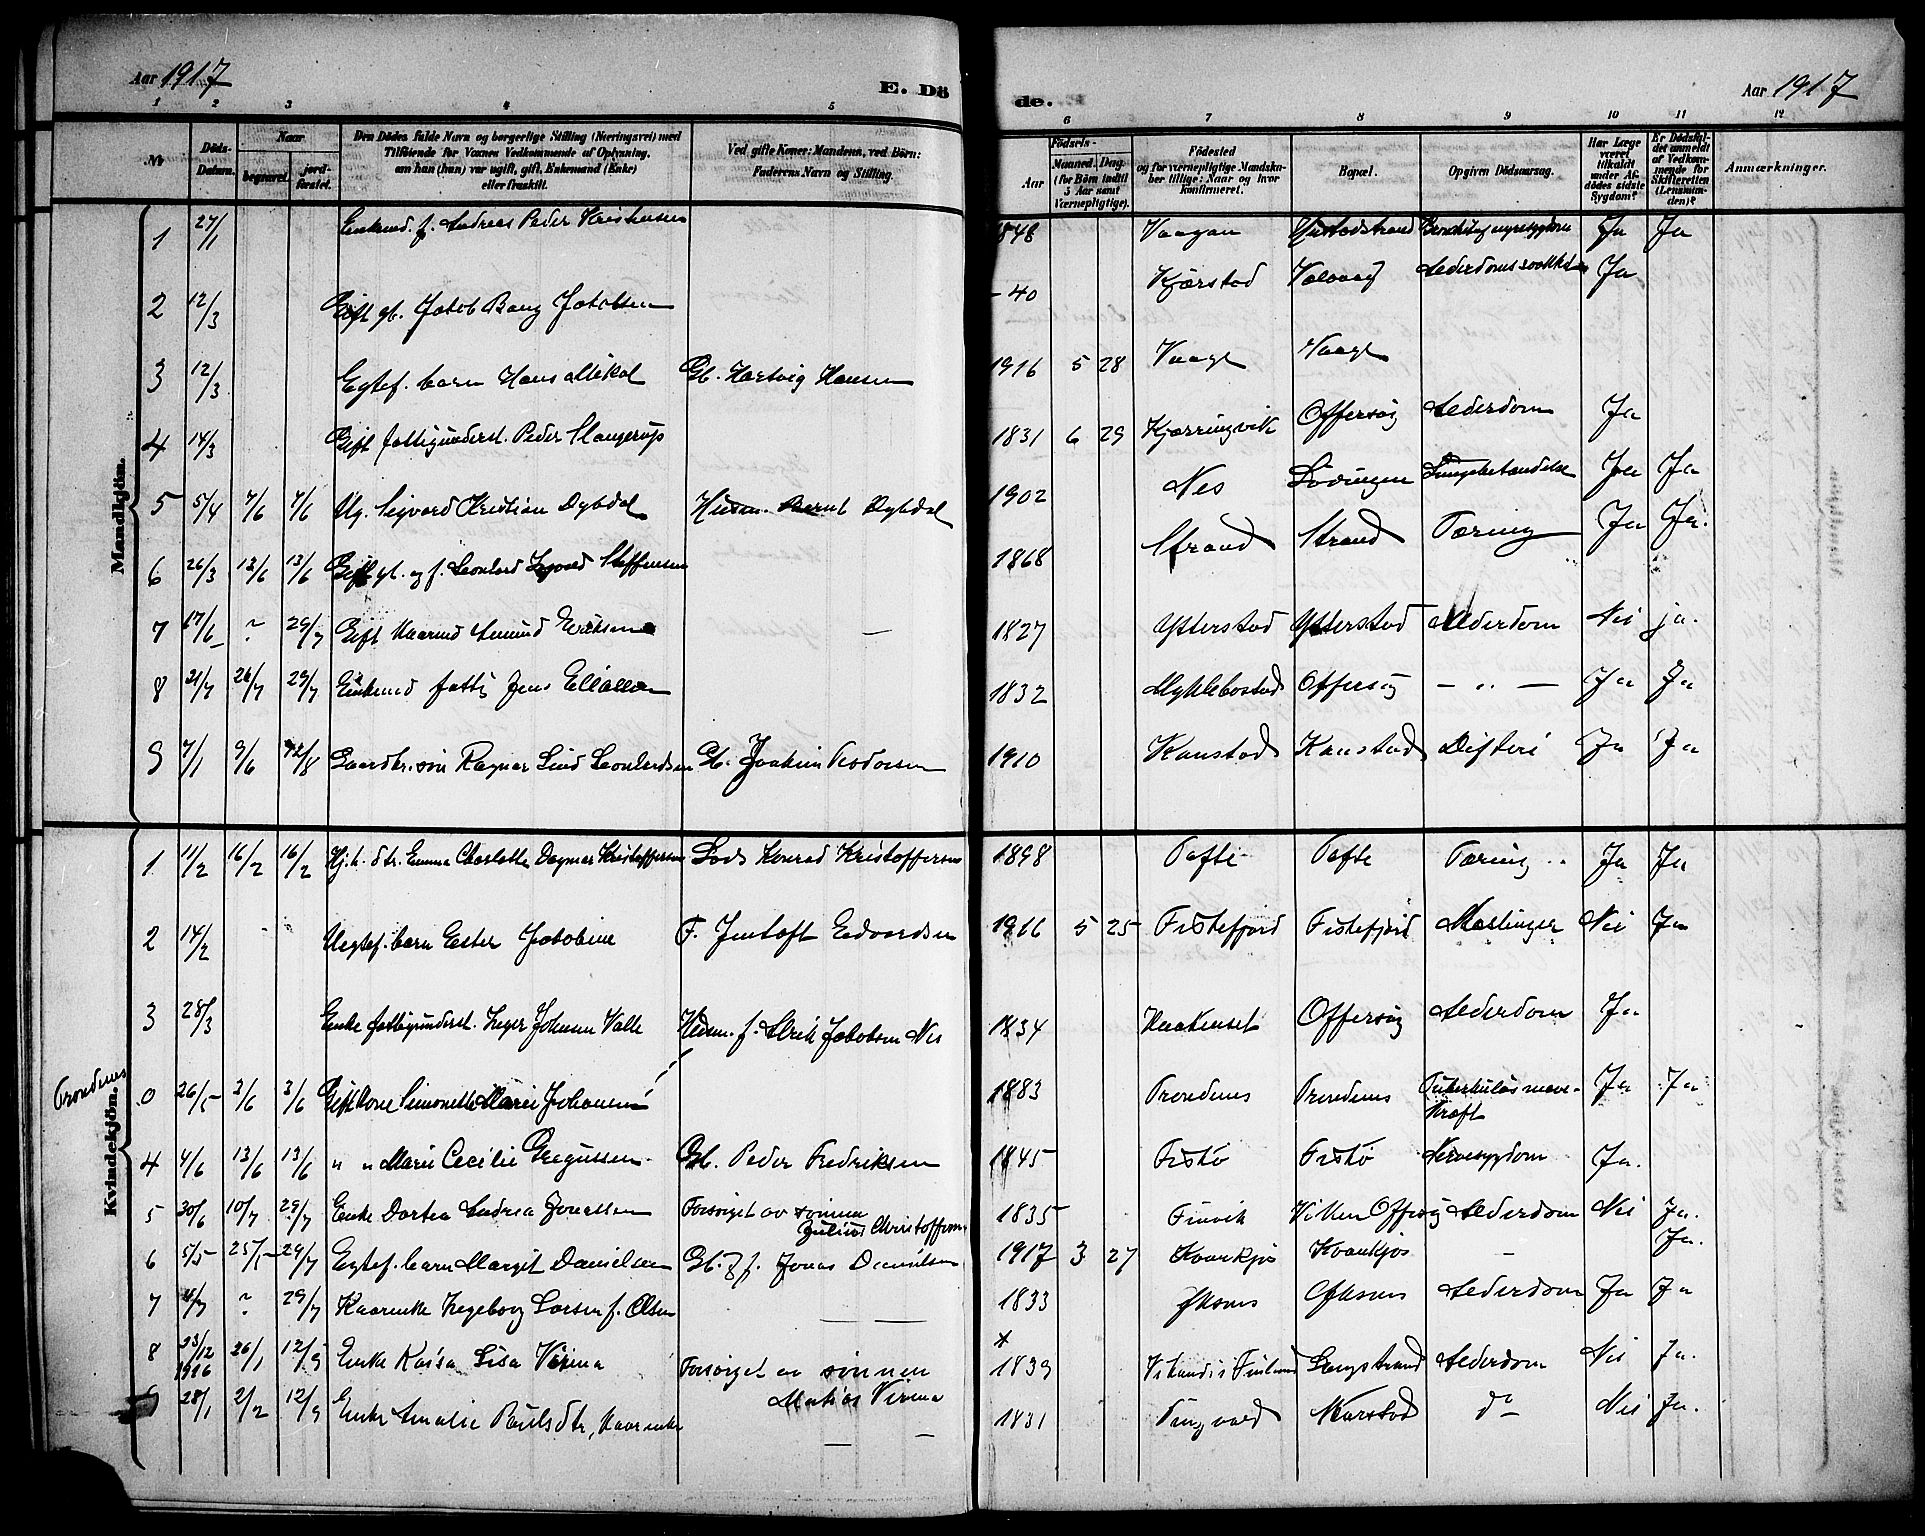 Aar 1917
E. Dö
de.
Aar 1917
1 2 3 4 5 6 7 8 9 10 11 12
Nr
Döds-Datum.
Naar
begravet.
jord-fæstet.
Den Dödes fulde Navn og borgerlige Stilling (Næringsvei) med
Tilföiende for Voxnes Vedkommende af Oplysning,
om han (hun) var ugift, gift, Enkemand (Enke)
eller fraskilt.
Ved gifte Koner: Mandens, ved Börn:
Faderens Navn og Stilling.
Födsels-
Aar
Maaned. Dag.
(for Börn indtil
5 Aar samt
Værnepligtige).
Födested
og for værnepligtige Mandska-
ber tillige: Naar og hvor
konfirmeret.
Bopæl.
Opgiven Dödsaarsag.
Har Læge
været
tilkaldt
under Af-
dödes sidste
Sygdom?
Er Dödsfal-
det anmeldt
af Vedkom-
mende for
Skifteretten
(Lensman-
den)?
Anmærkninger.
Mandkjön.
1 27/1 Enkemd. f. Andreas Peder Kristensen 1848 Vaagan Ja Ja
2 12/3 Gift gb. Jakob Bang Jakobsen - 40 Kjørstad Valvaag Ja
3 12/3 Egtef. barn Hans Mikal Gb. Hartvig Hansen 1916 5 28 Vaage Vaage
4 14/3 Gift fattigunderst. Peder Slangerup 1831 6 29 Kjærringvik Offersøy Alderdom Ja
5 5/4 7/6 7/6 Ug. Sigvard Kristian Dybdal Husm. Bernt Dybdal 1902 Nes Lødingen Lungebetændelse Ja Ja
6 26/3 13/6 13/6 Gift gb. og f. Leonhard Steffensen 1868 Strand Strand Tæring Ja Ja.
7 17/6 ? 29/7 Gift Kaarmd Amund Eriksen — 1827 Ytterstad Ytterstad Alderdom Nei ja.
8 21/7 26/7 29/7 Enkemd fattig Jens Eliassen 1832 Myklebostad Offersøy — " — Ja Ja
9 7/1 9/6 12/8 Gaardbr. søn Ragnar Lind Leonhardsen Gb. Joakim Teodorsen 1910 Kanstad Kanstad Difteri Ja Ja
Kvindekjön.
1 11/2 16/2 16/2 Hj.h. dtr. Emma Charlotte Dagmar Kristoffersen Lods Konrad Kristoffersen 1898 Tofte Tofte Tæring Ja Ja
2 14/2 Uegtef. barn Ester Jakobine F. Jentoft Edvardsen 1916 5 25 Fiskefjord Fiskefjord Meslinger Nei Ja
3 28/3 Enke fattigunderst. Inger Johanna Valle Husm. f. Ulrik Jakobsen Nes 1834 Haakenset Offersøy Alderdom Ja
Trondenes 0 26/5 3/6 3/6 Gift kone Simonette Marie Johansen 1883 Trondenes Trondenes Tuberkuløs mave-
kræft Ja Ja
4 4/6 13/6 13/6 " " Marie Cecilie Gregussen Gb. Peder Fredriksen 1845 Fiskø Fiskø Nervesygdom Ja.
5 30/6 10/7 29/7 Enke Dortea Andrea Jonassen Forsørget av sønnen
Julius Christoffersen 1835 Finvik Offersøy Alderdom Nei Ja.
6 5/5 25/5 29/7 Egtef. barn Margit Danielsen Gb. f. Jonas Danielsen 1917 3 27 Kvankjos Kvankjos — Ja.
7 4/7 ? 29/7 Kaarenke Ingeborg Larsen f. Olsen — — 1833 Oksnes Oksnes Alderdom Ja Ja
8 23/12
1916 26/1 12/9 Enke Kaisa Lisa Virma Forsørget av sønnen
Matias Virma * 1839 Finland Langstrand Alderdom Nei Ja.
9 28/1 2/2 12/9 Enke Amalie Paulsdtr, Kaarenke — — 1831 Tingvold Kvarstad do Nei Ja.